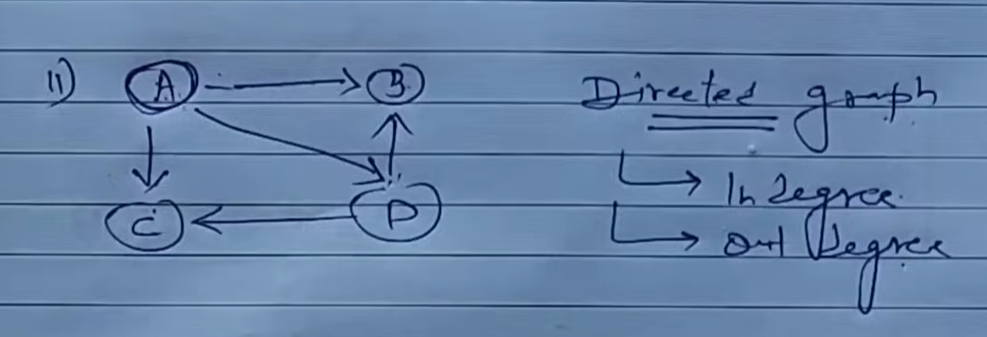 11) A B
C D
Directed graph
In degree
out Degree